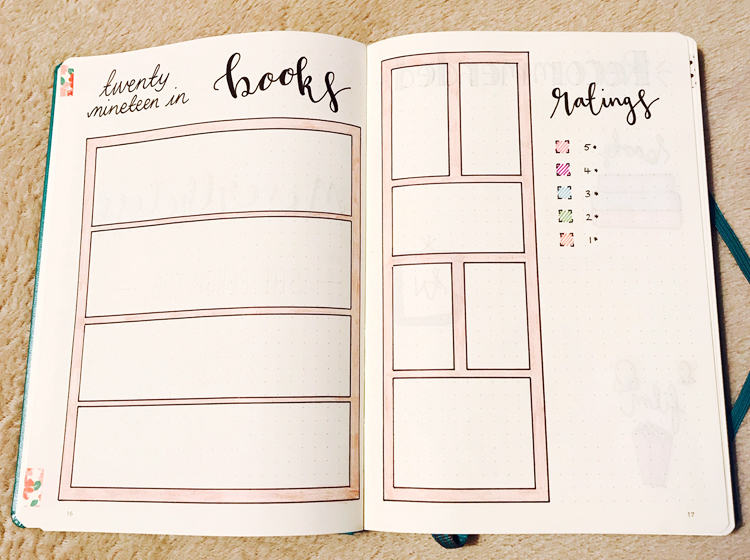 twenty
nineteen in
books
ratings
5★
4★
3★
2★
1★
16
17
Recommended